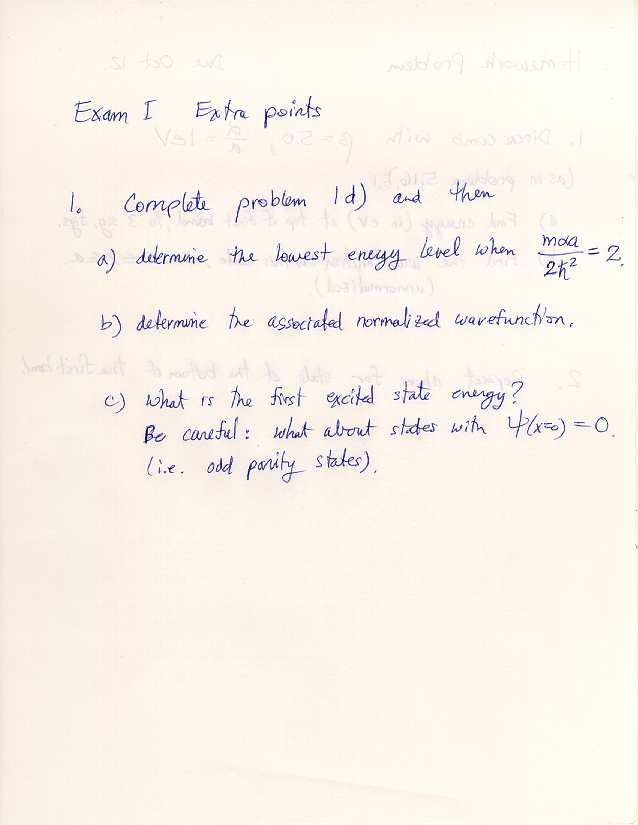 Exam I Extra points
1. Complete problem 1d) and then
a) determine the lowest energy level when mαa/2ħ² = 2.
b) determine the associated normalized wavefunction.
c) What is the first excited state energy?
Be careful: what about states with ψ(x=0) = 0.
(i.e. odd parity states).